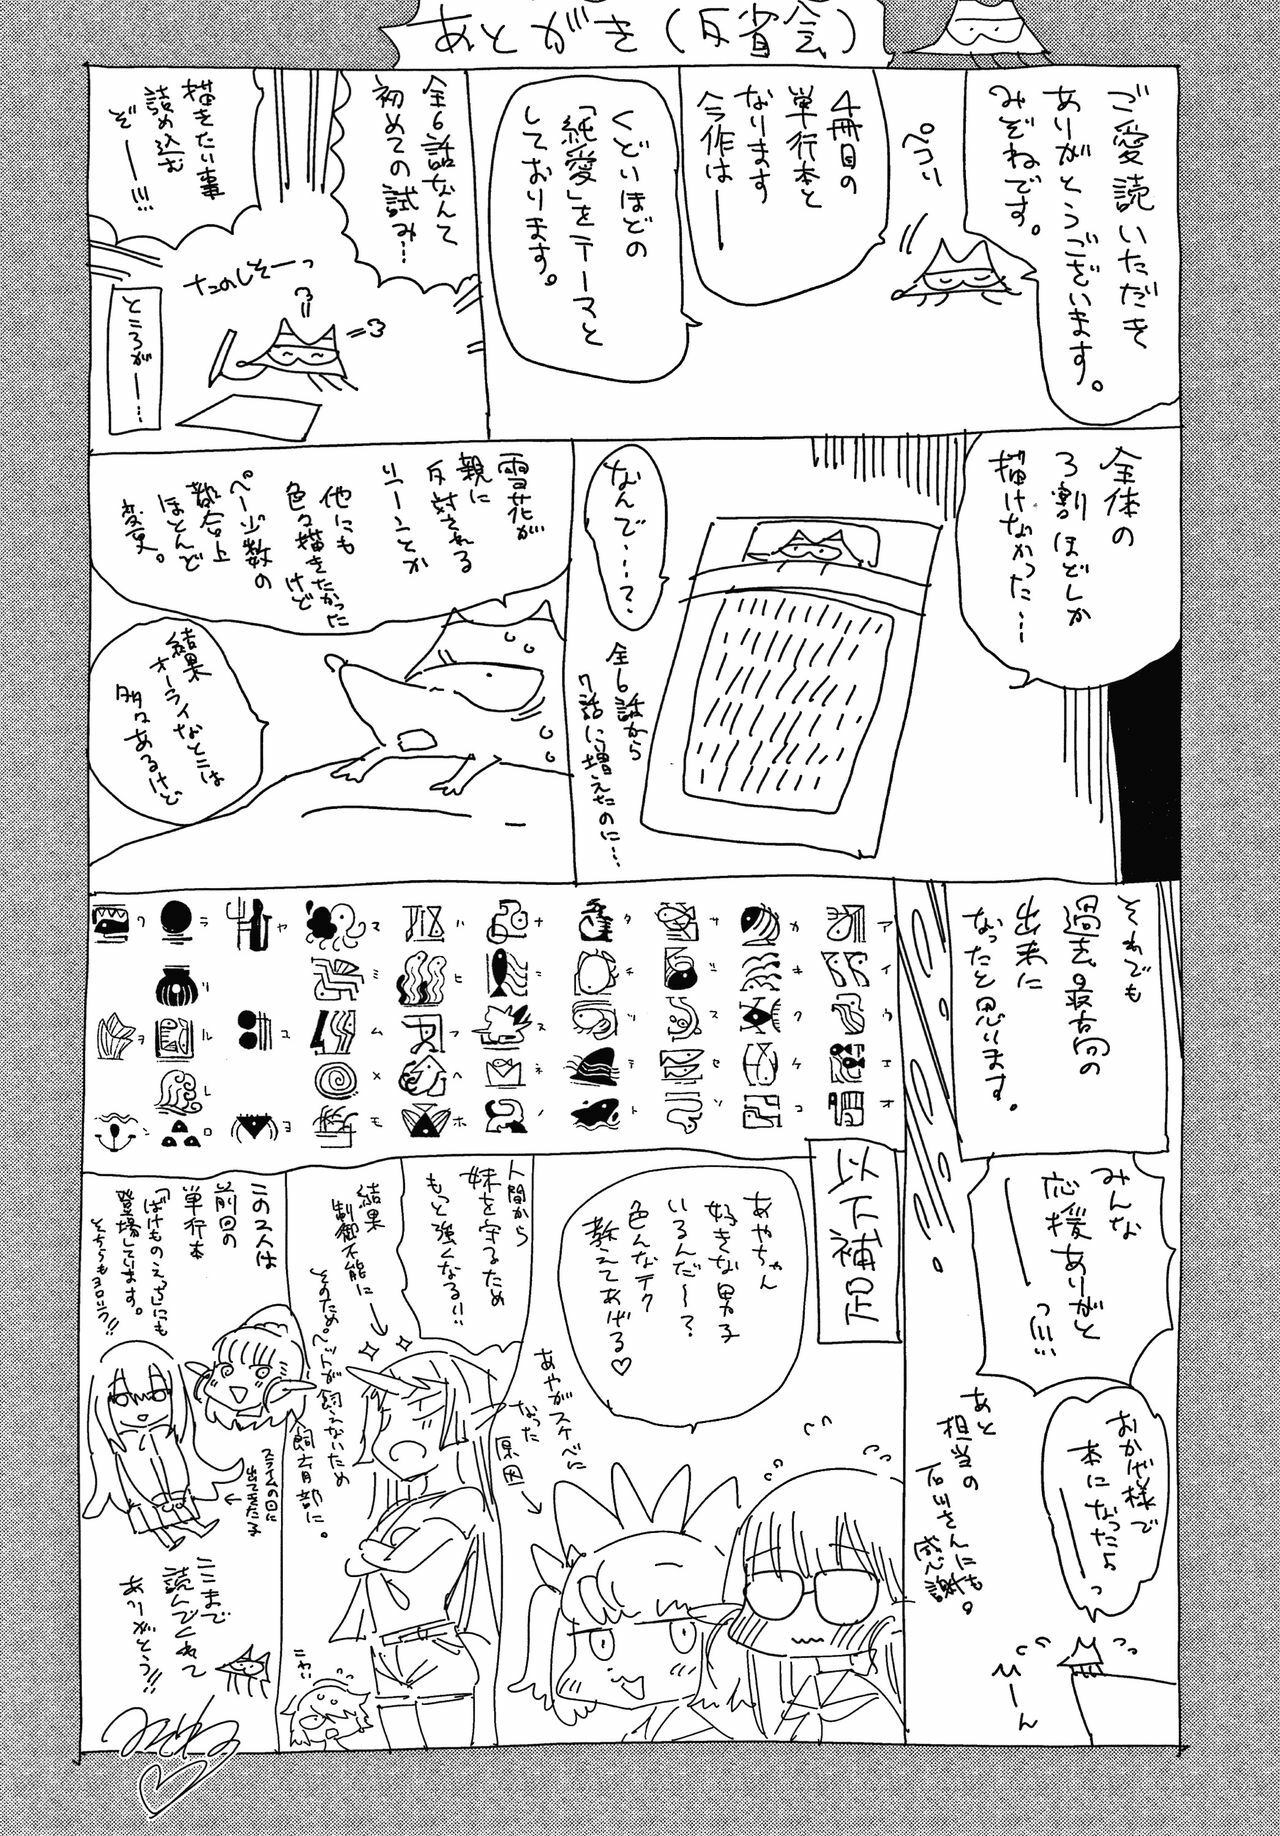 あとがき(反省会)
ご愛読いただき
ありがとうございます。
みぞねです。
ペコリ
4冊目の
単行本と
なります
今作は――
くどいほどの
「純愛」をテーマと
しております。
全6話なんて
初めての試み…
描きたい事
詰め込む
ぞ――!!!
たのしそーっ
ところが―…
全体の
3割ほどしか
描けなかった…
なんで……?
全6話から
7話に増えたのに…
雪花が
親に
反対される
シーンとか
他にも
色々描きたかった
けど
ページ数の
都合上
ほとんど
変更。
結果
オーライなとこは
多々あるけど
それでも
過去最高の
出来に
なったと思います。
みんな
応援ありがと
――っ!!!
おかげ様で
本になったよ
――っ
あと
担当の
石川さんにも
感謝。
ひーん
ア
イ
ウ
エ
オ
カ
キ
ク
ケ
コ
サ
シ
ス
セ
ソ
タ
チ
ツ
テ
ト
ナ
ニ
ヌ
ネ
ノ
ハ
ヒ
フ
ヘ
ホ
マ
ミ
ム
メ
モ
ヤ
ユ
ヨ
ラ
リ
ル
レ
ロ
ワ
ヲ
ン
以下補足
あやちゃん
好きな男子
いるんだ〜?
色んなテク
教えてあげる♡
あやがスケベに
なった
原因→
人間から
妹を守るため
もっと強くなる!!
結果
制御不能に→
そのため。ペットが飼えないため
飼育部に。
この2人は
前回の
単行本
「ばけものえっち」にも
登場しています。
そちらもヨロシク!!
スライムの回に
出てきた子
ここまで
読んでくれて
ありがとう!!
みぞね